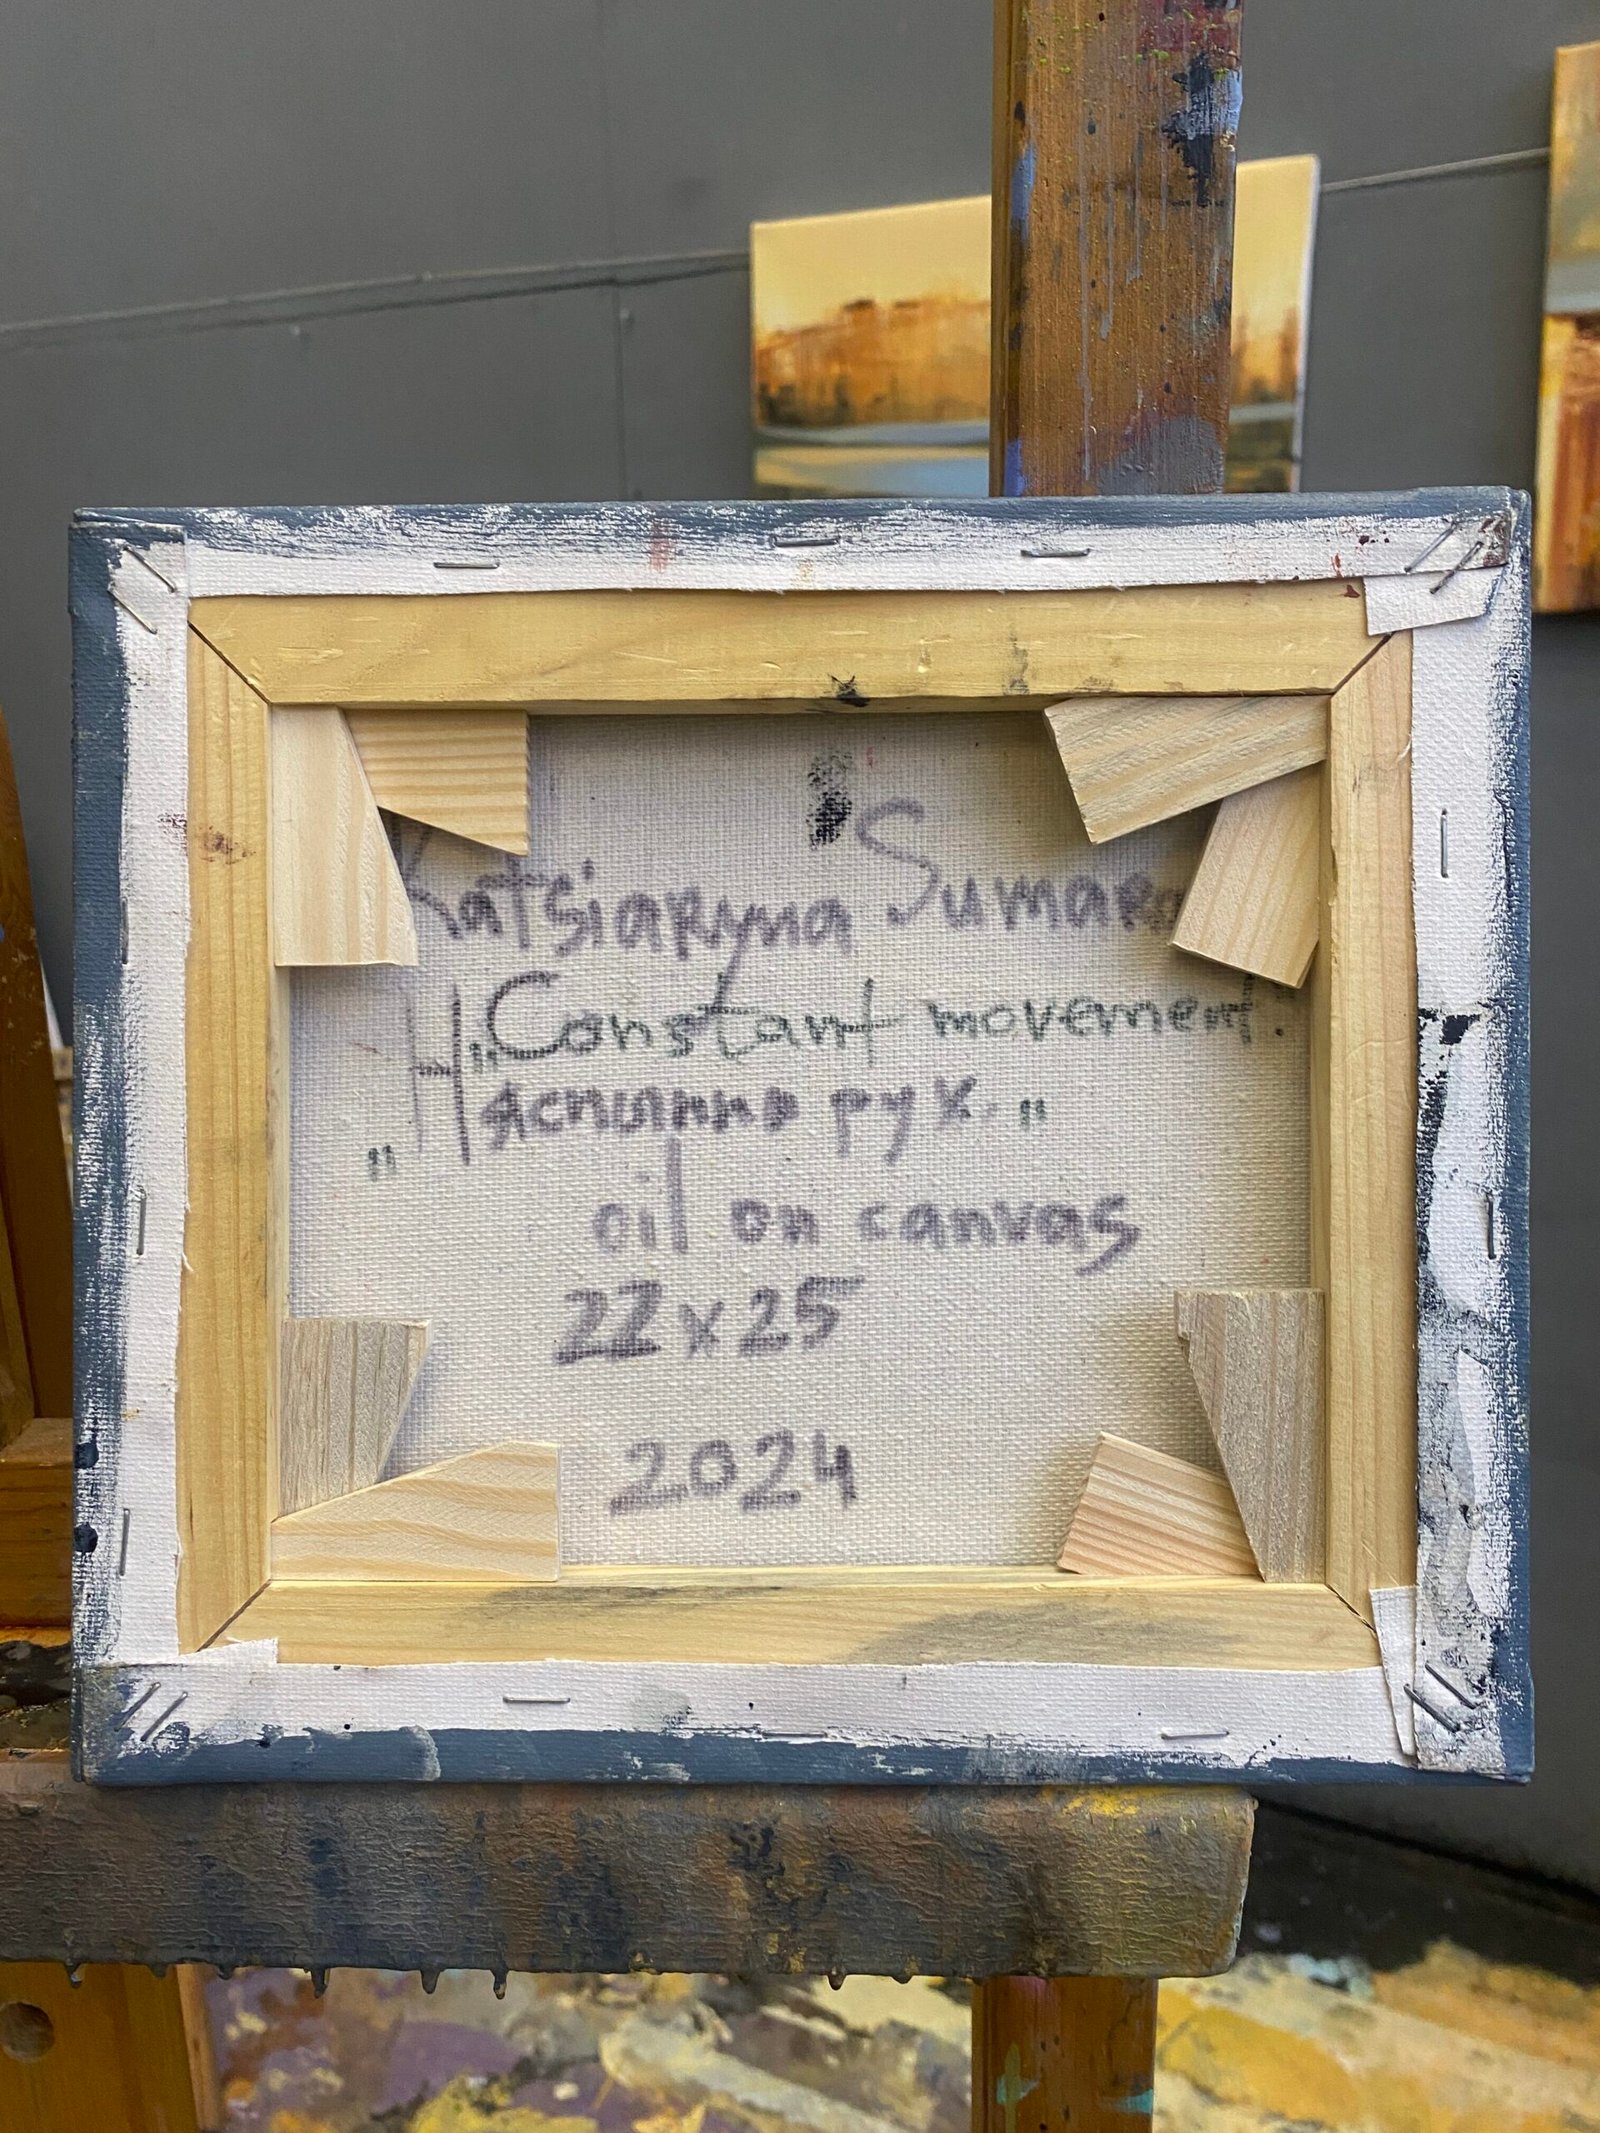 Katsiaryna Sumara
„Constant movement"
„Няспынны рух"
oil on canvas
22x25
2024